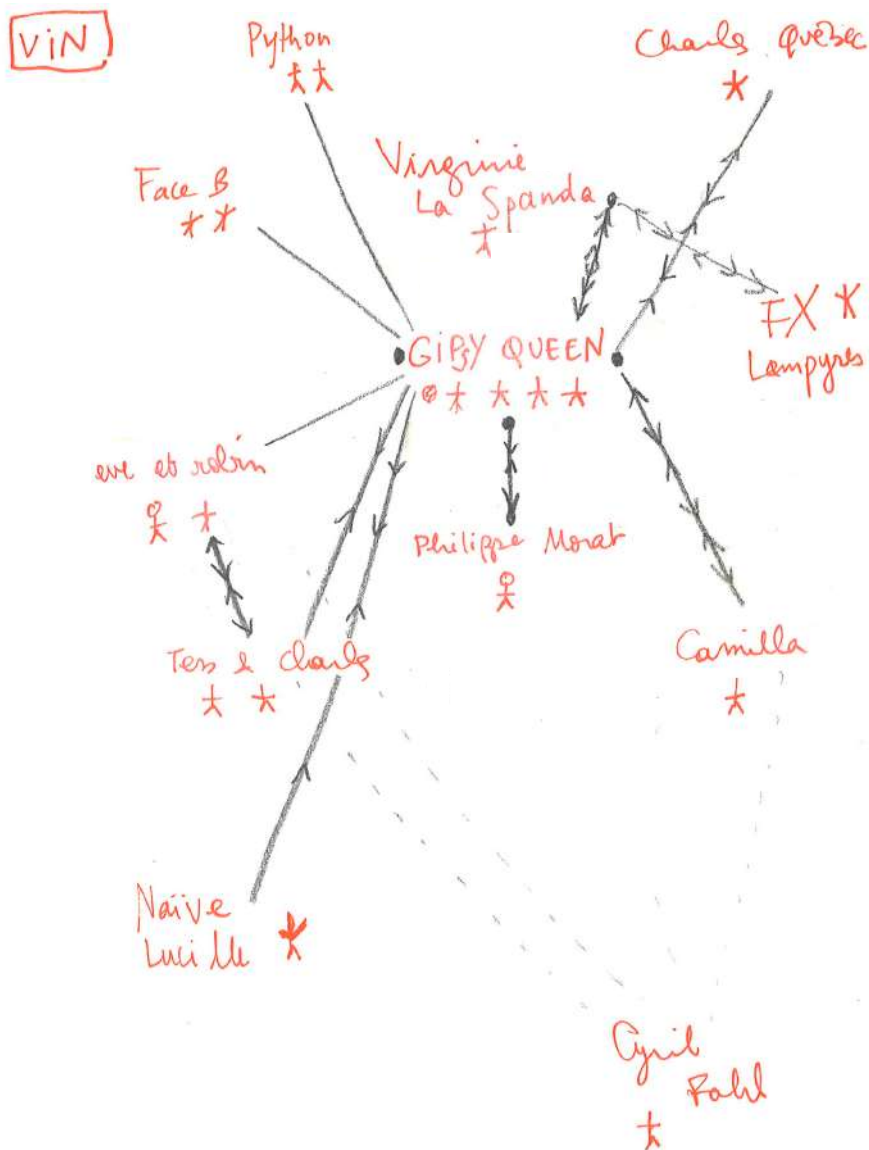 ViN
Python
Charles Québec
Virginie
La Spanda
Face B
FX
Lampyres
GiPSY QUEEN
eve et robin
Philippe Morat
Tess & Charles
Camilla
Naïve
Lucille
Cyril